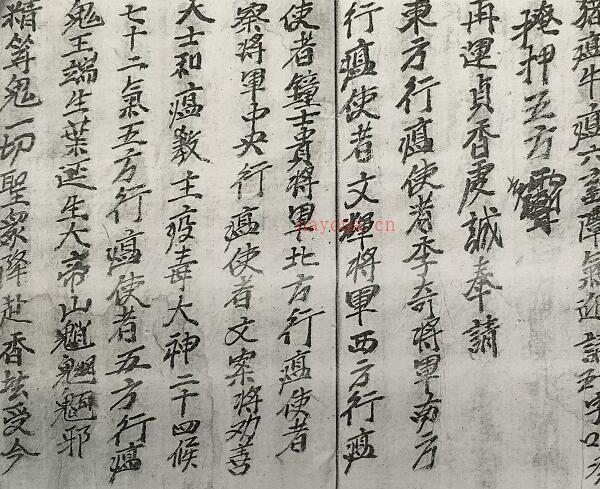 猪瘟牛瘟六畜
掩押五方
再運貞香虔誠奉請
東方行瘟使者李奇將軍南方
行瘟使者文輝將軍西方行瘟
使者鐘士貴將軍北方行瘟使者
察將軍中央行瘟使者文案將劝善
大士和瘟教主疫毒大神二十四候
七十二氣五方行瘟使者五方行瘟
鬼王端生葉延生大帝山魈魍魎邪
精等鬼一切聖衆降赴香筵受今
nayona.cn